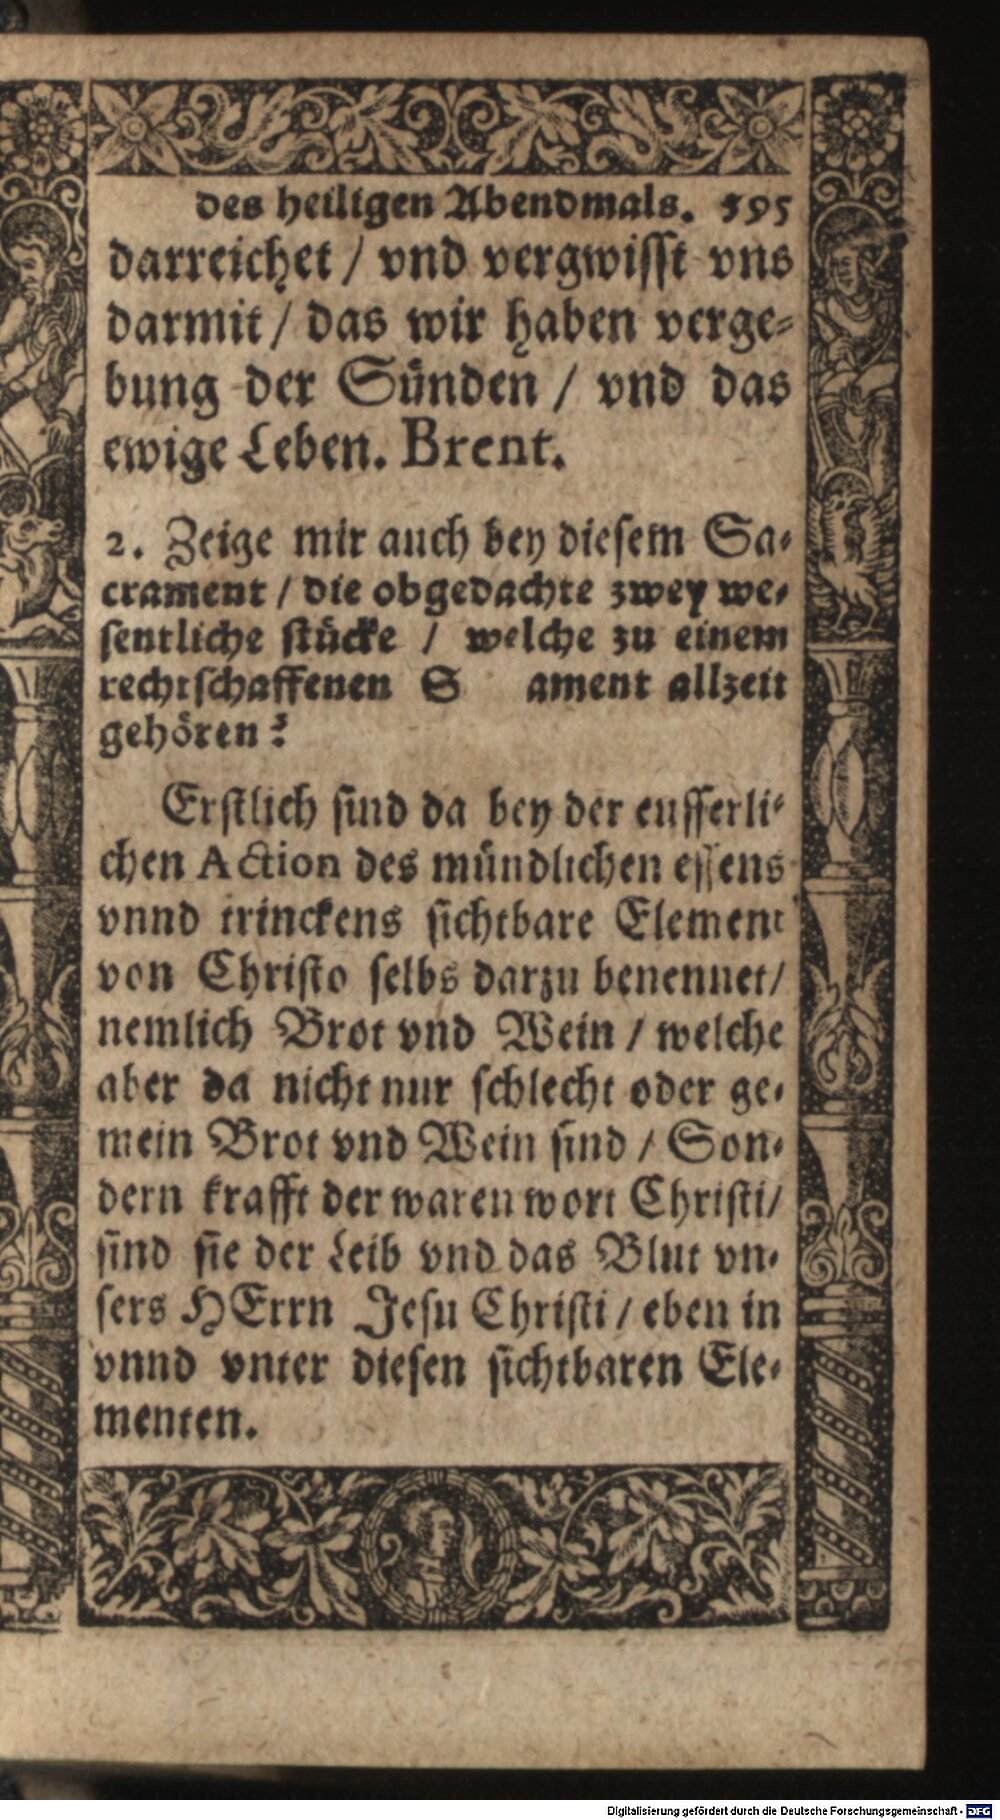 des heiligen Abendmals. 595
darreichet / vnd vergwisst vns
darmit / das wir haben verge-
bung der Sünden / vnd das
ewige Leben. Brent.
2. Zeige mir auch bey diesem Sa-
crament / die obgedachte zwey we-
sentliche stücke / welche zu einem
rechtschaffenen S ament allzeit
gehören?
Erstlich sind da bey der eusserli-
chen Action des mündlichen essens
vnnd trinckens sichtbare Element
von Christo selbs darzu benennet/
nemlich Brot vnd Wein / welche
aber da nicht nur schlecht oder ge-
mein Brot vnd Wein sind / Son-
dern krafft der waren wort Christi/
sind sie der Leib vnd das Blut vn-
sers HErrn Jesu Christi / eben in
vnnd vnter diesen sichtbaren Ele-
menten.
Digitalisierung gefördert durch die Deutsche Forschungsgemeinschaft - DFG